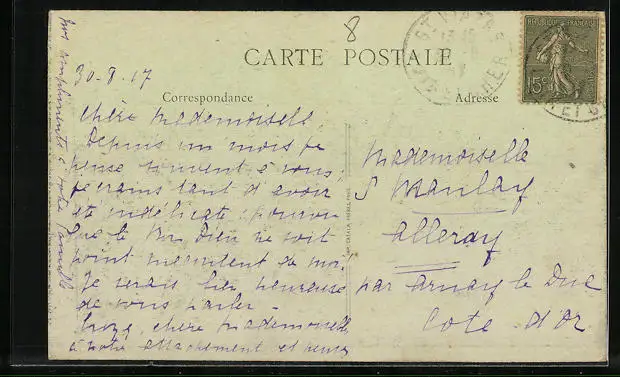 8
CARTE POSTALE
REPUBLIQUE FRANÇAISE
15c
30-8-17
Correspondance
Adresse
Chère Mademoiselle
Depuis un mois je
pense souvent à vous,
je crains tant d'avoir
été indélicate, pourvu
que le Bon Dieu ne soit
point mécontent de moi.
Je serais bien heureuse
de vous parler.
Croyez, chère Mademoiselle,
à notre attachement et
Mes compliments à votre famille
Mademoiselle
Manlay
Alleray
par Arnay le Duc
Cote d'Or